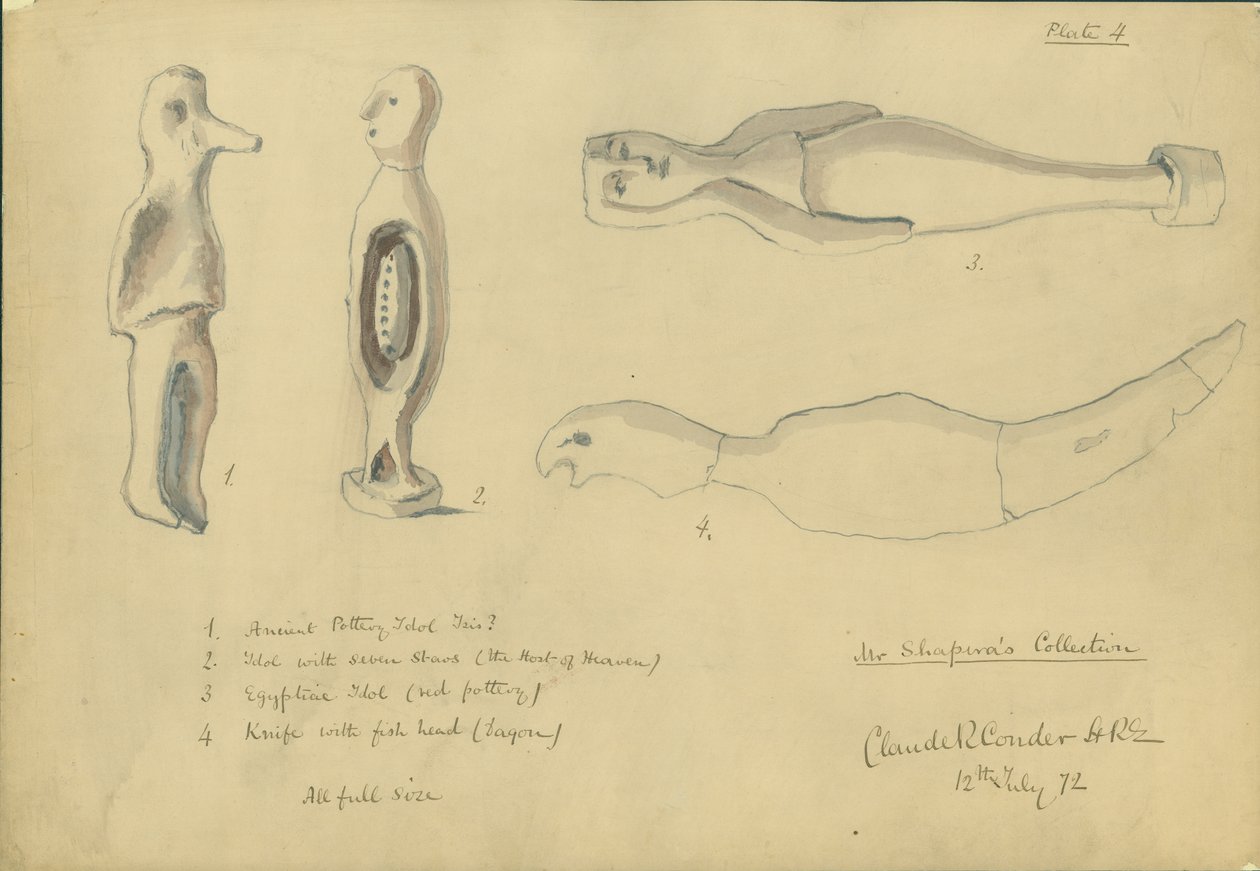 Plate 4
1.
2.
3.
4.
1. Ancient Pottery Idol Isis?
2. Idol with seven stars (the Host of Heaven)
3 Egyptian Idol (red pottery)
4 Knife with fish head (Dagon)
All full size
Mr Shapira's Collection
Claude R Conder Lt RE
12th July 72